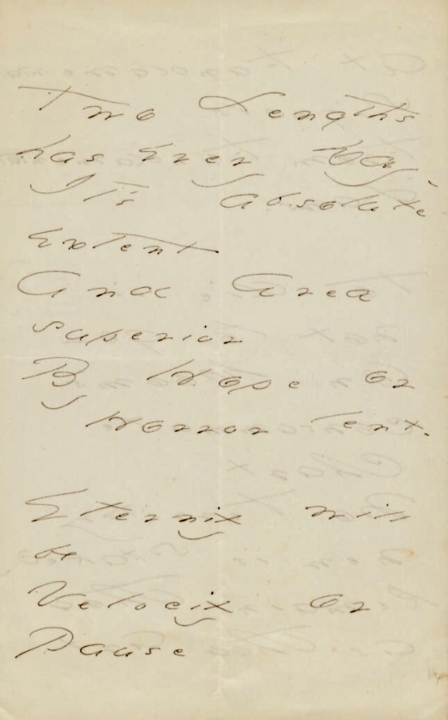 Two Lengths
has every Day
It's absolute
extent
And Area
superior
By Hope or
Horror lent.
Eternity will
be
Velocity or
Pause